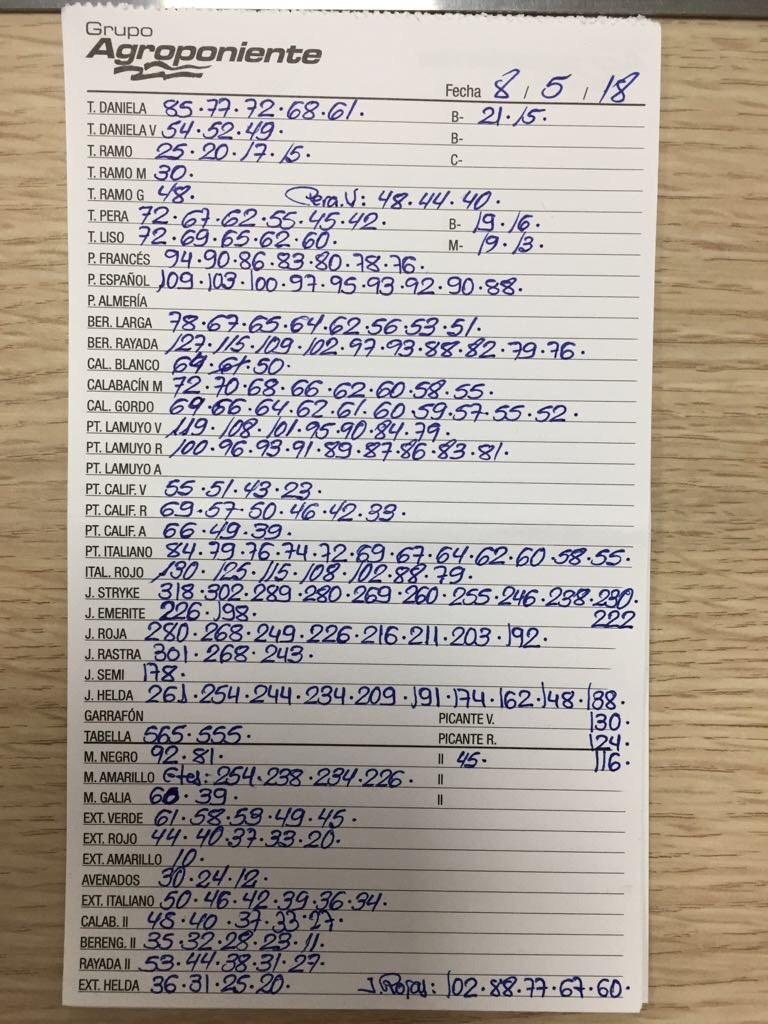 Grupo
Agroponiente
Fecha 8 / 5 / 18
T. DANELA 85.77.72.68.61. B- 21.15.
T. DANIELA V 54.52.49. B-
T. RAMO 25.20.17.15. C-
T. RAMO M 30.
T. RAMO G 48. Pera.V: 48.44.40.
T. PERA 72.67.62.55.45.42. B- 19.16.
T. LISO 72.69.65.62.60. M- 19.13.
P. FRANCÉS 94.90.86.83.80.78.76.
P. ESPAÑOL 109.103.100.97.95.93.92.90.88.
P. ALMERÍA
BER. LARGA 78.67.65.64.62.56.53.51.
BER. RAYADA 127.115.109.102.97.93.88.82.79.76.
CAL. BLANCO 69.61.50.
CALABACÍN M 72.70.68.66.62.60.58.55.
CAL. GORDO 69.66.64.62.61.60.59.57.55.52.
PT. LAMUYO V 119.108.101.95.90.84.79.
PT. LAMUYO R 100.96.93.91.89.87.86.83.81.
PT. LAMUYO A
PT. CALIF. V 55.51.43.23.
PT. CALIF. R 69.57.50.46.42.33.
PT. CALIF. A 66.49.39.
PT. ITALIANO 84.79.76.74.72.69.67.64.62.60.58.55.
ITAL. ROJO 130.125.115.108.102.88.79.
J. STRYKE 318.302.289.280.269.260.255.246.238.230.
J. EMERITE 226.198. 222
J. ROJA 280.268.249.226.216.211.203.192.
J. RASTRA 301.268.243.
J. SEMI 178.
J. HELDA 261.254.244.234.209.191.174.162.148.188.
GARRAFÓN PICANTE V. 130.
TABELLA 565.555. PICANTE R. 124.
M. NEGRO 92.81. II 45. 116
M. AMARILLO Etes: 254.238.234.226. II
M. GALIA 60.39. II
EXT. VERDE 61.58.53.49.45.
EXT. ROJO 44.40.37.33.20.
EXT. AMARILLO 10.
AVENADOS 30.24.12.
EXT. ITALIANO 50.46.42.39.36.34.
CALAB. II 48.40.37.33.27.
BERENG. II 35.32.28.23.11.
RAYADA II 53.44.38.31.27.
EXT. HELDA 36.31.25.20. J.Rojas: 102.88.77.67.60.